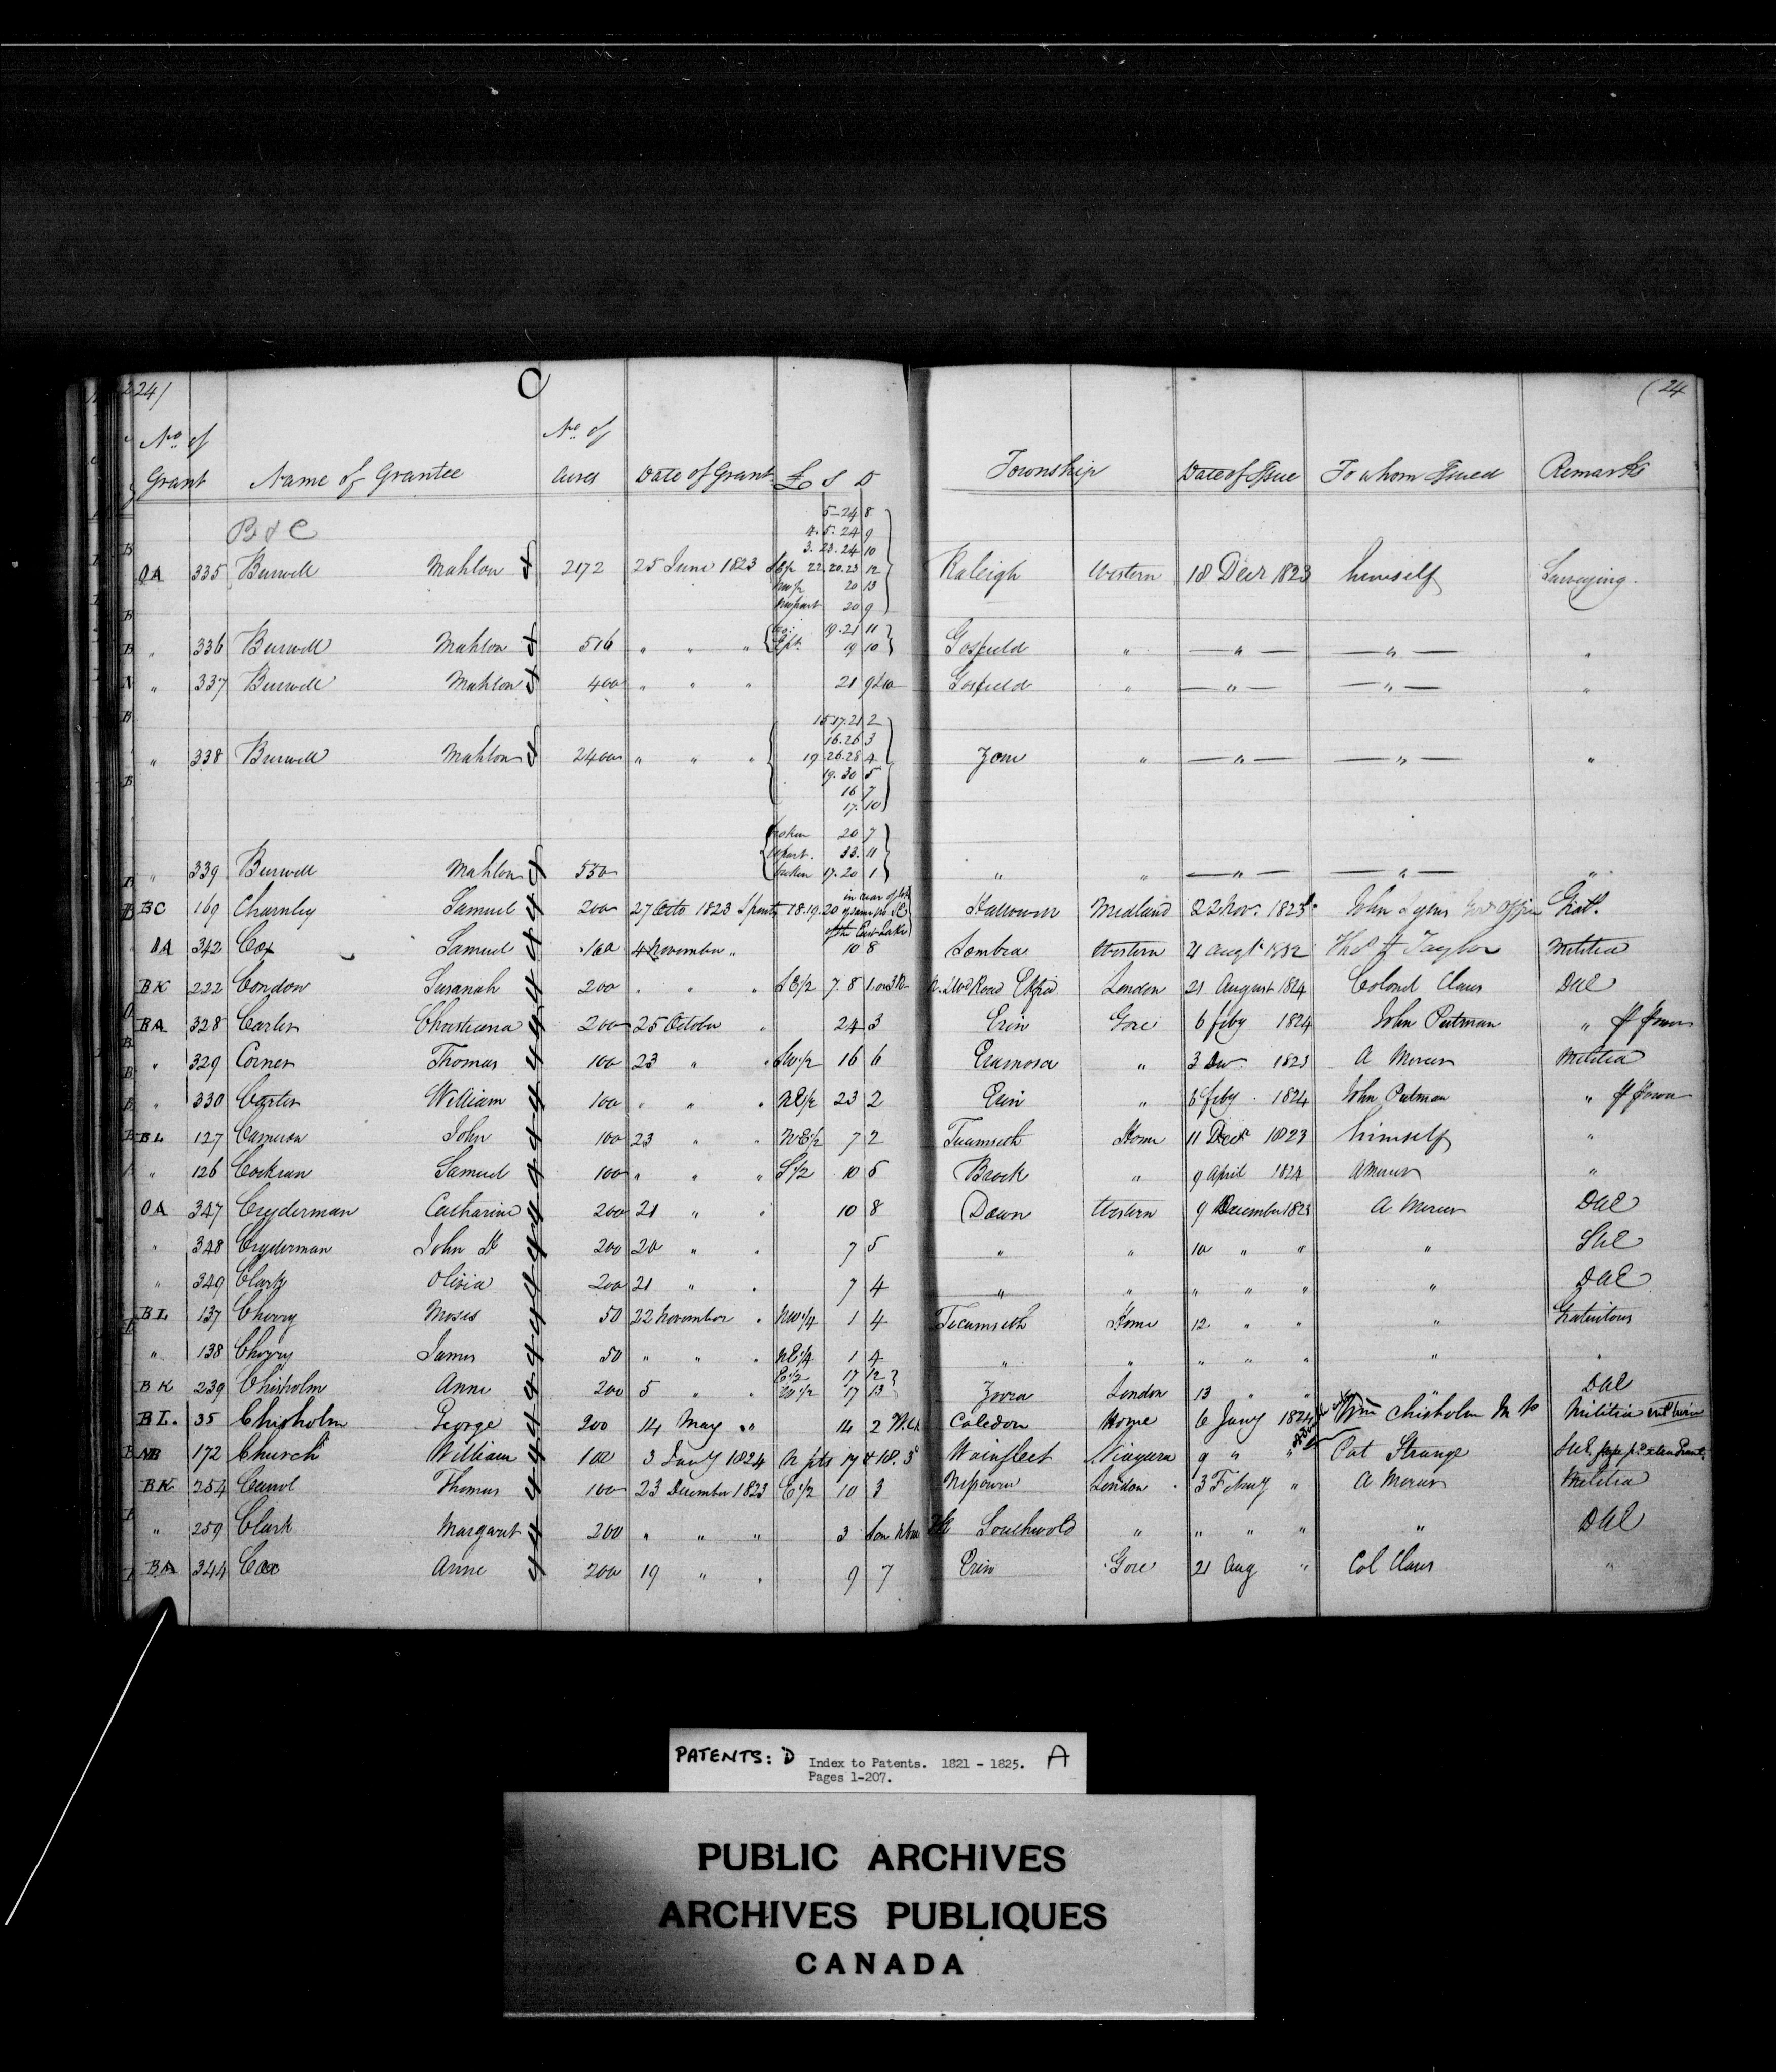 224/ C (24
No. of No. of
Grant Name of Grantee Acres Date of Grant £ S D Township Date of Issue To whom Issued Remarks
B & C
5-24 8
4.5.24 9
3.23.24 10
OA 335 Burwell Mahlon 2172 25 June 1823 22.20.23 12 Raleigh Western 18 Decr 1823 himself Surveying
20 13
20 9
19.21 11
" 336 Burwell Mahlon 516 " " " 19 10 Gosfield " — " — — " — "
" 337 Burwell Mahlon 400 " " " 21 9&10 Gosfield " — " — — " — "
15.17.21 2
16.26 3
" 338 Burwell Mahlon 2400 " " " 19 26.28 4 Zone " — " — — " — "
19.30 5
16 7
17. 10
broken 20 7
Wpart. 33. 11
" 339 Burwell Mahlon 550 broken 17.20 1 " " — " — — " — "
BC 169 Charnley Samuel 200 27 Octo 1823 18.19.20 Hallowell Midland 22 Nov. 1823 John Lyons Grat.
East Lake
OA 342 Cox Samuel 100 4 November " 10 8 Sombra Western 21 augt 1832 Taylor Militia
BK 222 Condon Susanah 200 " " " S E 1/2 7. 8 Road Ekfrid London 21 August 1824 Colonel Claus DUE
BA 328 Carter Christiana 200 25 October " 24 3 Erin Gore 6 feby 1824 John Putman "
" 329 Corner Thomas 100 23 " " SW 1/2 16 6 Eramosa " 3 Dec. 1823 A Mercer Militia
" 330 Carter William 100 " " " NE 1/2 23 2 Erin " 6 feby. 1824 John Putman "
BL 127 Cameron John 100 23 " " NE 1/2 7 2 Tecumseth Home 11 Decr 1823 himself "
" 126 Cockran Samuel 100 " " " S 1/2 10 5 Brock " 9 April 1824 A Mercer "
OA 347 Cryderman Catharine 200 21 " " 10 8 Dawn Western 9 December 1823 A Mercer DUE
" 348 Cryderman John H 200 20 " " 7 5 " " 10 " " " SUE
" 349 Clark Olivia 200 21 " " 7 4 " " " " " " DUE
BL 137 Cherry Moses 50 22 November " NW 1/4 1 4 Tecumseth Home 12 " " " Gratuitous
" 138 Cherry James 50 " " " NE 1/4 1 4 " " " " " " "
E 1/2 17 12
BK 239 Chisholm Anne 200 5 " " W 1/2 17 13 Zorra London 13 " " " DUE
BL. 35 Chisholm George 200 14 May " 14 2 Caledon Home 6 Jany 1824 Wm Chisholm Militia
NB 172 Church William 100 3 Jany 1824 N pts 17 & 18. 3 Wainfleet Niagara 9 " " Pat Strange SUE
BK 254 Carrol Thomas 100 23 December 1823 E 1/2 10 3 London 3 Febuy " A Mercer Militia
" 259 Clark Margaret 200 " " " 3 Southwold " " " " " DUE
BA 344 Cox Anne 200 19 " " 9 7 Erin Gore 21 Aug " Col Claus "
PATENTS: D Index to Patents. 1821 - 1825. A
Pages 1-207.
PUBLIC ARCHIVES
ARCHIVES PUBLIQUES
CANADA